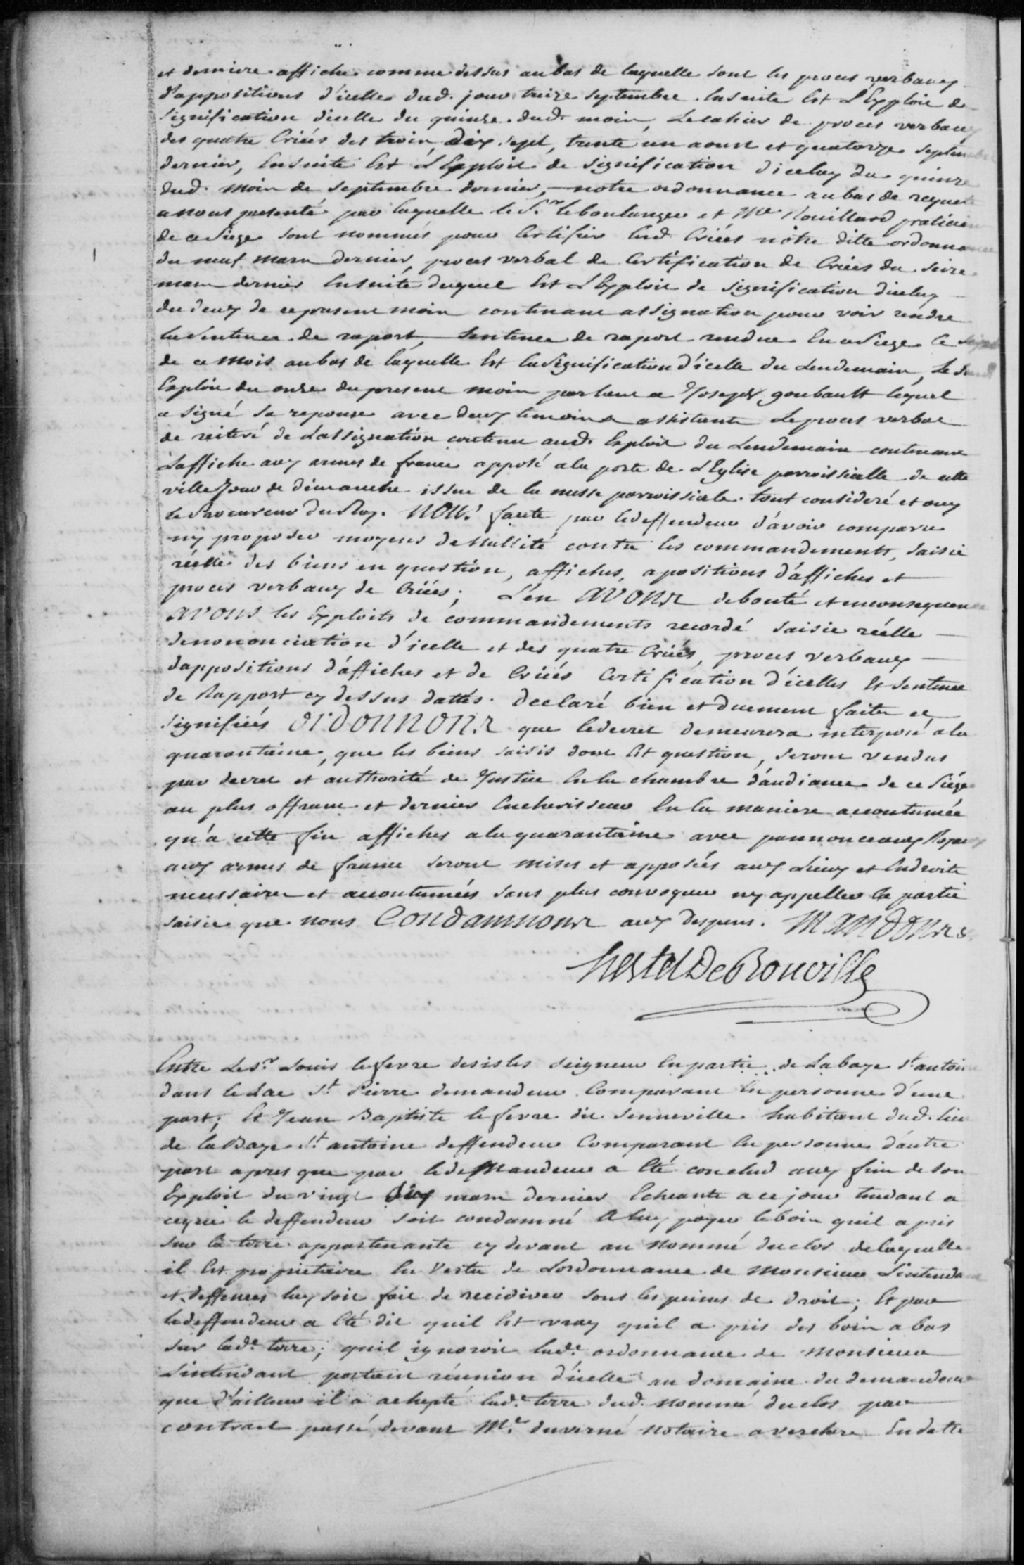 et derniere affiche comme dessus au bas de laquelle sont les proces verbaux
d'appositions d'icelles dud. jour treize septembre. Ensuite Est L'Exploit de
signification d'icelle du quinze dud. mois, Le cahier de proces verbaux
des quatre Criés des trois dix sept, trente un aoust et quatorze septembre
dernier, Ensuite Est L'Exploit de signification d'iceluy du quinze
dud. mois de septembre dernier, notre ordonnance au bas de requete
a nous presenté par laquelle le Sr. leboulanger et Me Rouillard praticien
de ce Siege sont nommés pour Certifier lesd. Criées notre ditte ordonnance
du neuf mars dernier, proces verbal de Certification de Criées du seize
mars dernier Ensuite duquel Est L'Exploit de signification d'iceluy
du deux de ce present mois contenant assignation pour voir rendre
la sentence de raport, Sentence de raport rendue En ce Siege le sept
de ce mois au bas de laquelle Est la signification d'icelle du Lendemain, le
Exploit du onze du present mois parlant a Joseph goubault lequel
a signé sa reponse avec deux temoins assistants Le proces verbal
de reiteré de L'assignation contenue aud. Exploit du Lendemain contenant
L'affiche aux armes de france apposé a la porte de L'Eglise parroissialle de cette
ville Jour de dimanche issue de la messe parroissiale. tout consideré et ouy
le Procureur du Roy. NOUS faute par le deffendeur d'avoir comparu
ny proposer moyens de Nullité contre les commandements, saisie
réelle des biens en question, affiches, apositions d'affiches et
proces verbaux de Criées; L'en AVONS debouté et en consequence
AVONS les Exploits de commandements recordé saisie réelle
denononciation d'icelle et des quatre Criées, proces verbaux
d'appositions d'affiches et de Criées Certification d'icelles Et sentence
de Rapport cy dessus dattés. Declaré bien et duement faits et
signifiées ORDONNONS que le decret demeurera interposé a la
quarantaine, que les biens saisis dont Est question, seront vendus
par decret et authorité de Justice En la chambre d'audiance de ce Siége
au plus offrant et dernier Encherisseur En la maniere accoutumée
qu'a cette fin affiches a la quarantaine avec pannonceaux Royaux
aux armes de france seront mises et apposées aux Lieux et Endroits
necessaires et accoutumés sans plus convoquer ny appeller la partie
saisie que nous CONDAMNONS aux Depens. MANDONS &.
hertel De Rouville
Entre Le Sr. Louis lefevre desisles seigneur En partie de La baye St. antoine
dans le Lac St. Pierre demandeur Comparant En personne d'une
part; Et Jean Baptiste lefevre dit Senneville habitant dud. lieu
de la Baye St. antoine deffendeur Comparant En personne d'autre
part apres que par le deMandeur a Eté conclud aux fins de son
Exploit du vingt six mars dernier Echeante a ce jour tendant a
ceque le deffendeur soit condamné A luy payer le bois qu'il a pris
sur la terre appartenante cy devant au Nommé duclos de laquelle
il Est proprietaire En Vertu de L'ordonnance de Monsieur L'intendant
et deffences luy soit fait de recidiver sous les peines de droit; Et par
le deffendeur a Eté dit qu'il Est vray qu'il a pris des bois a bas
sur lade. terre; qu'il ignoroit lade. ordonnance de Monsieur
L'intendant portant réunion d'icelle au domaine du demandeur
que d'ailleurs il a achepté lade. terre dud. Nommé duclos par
contrat passé devant Me. duverné notaire a verchere En datte